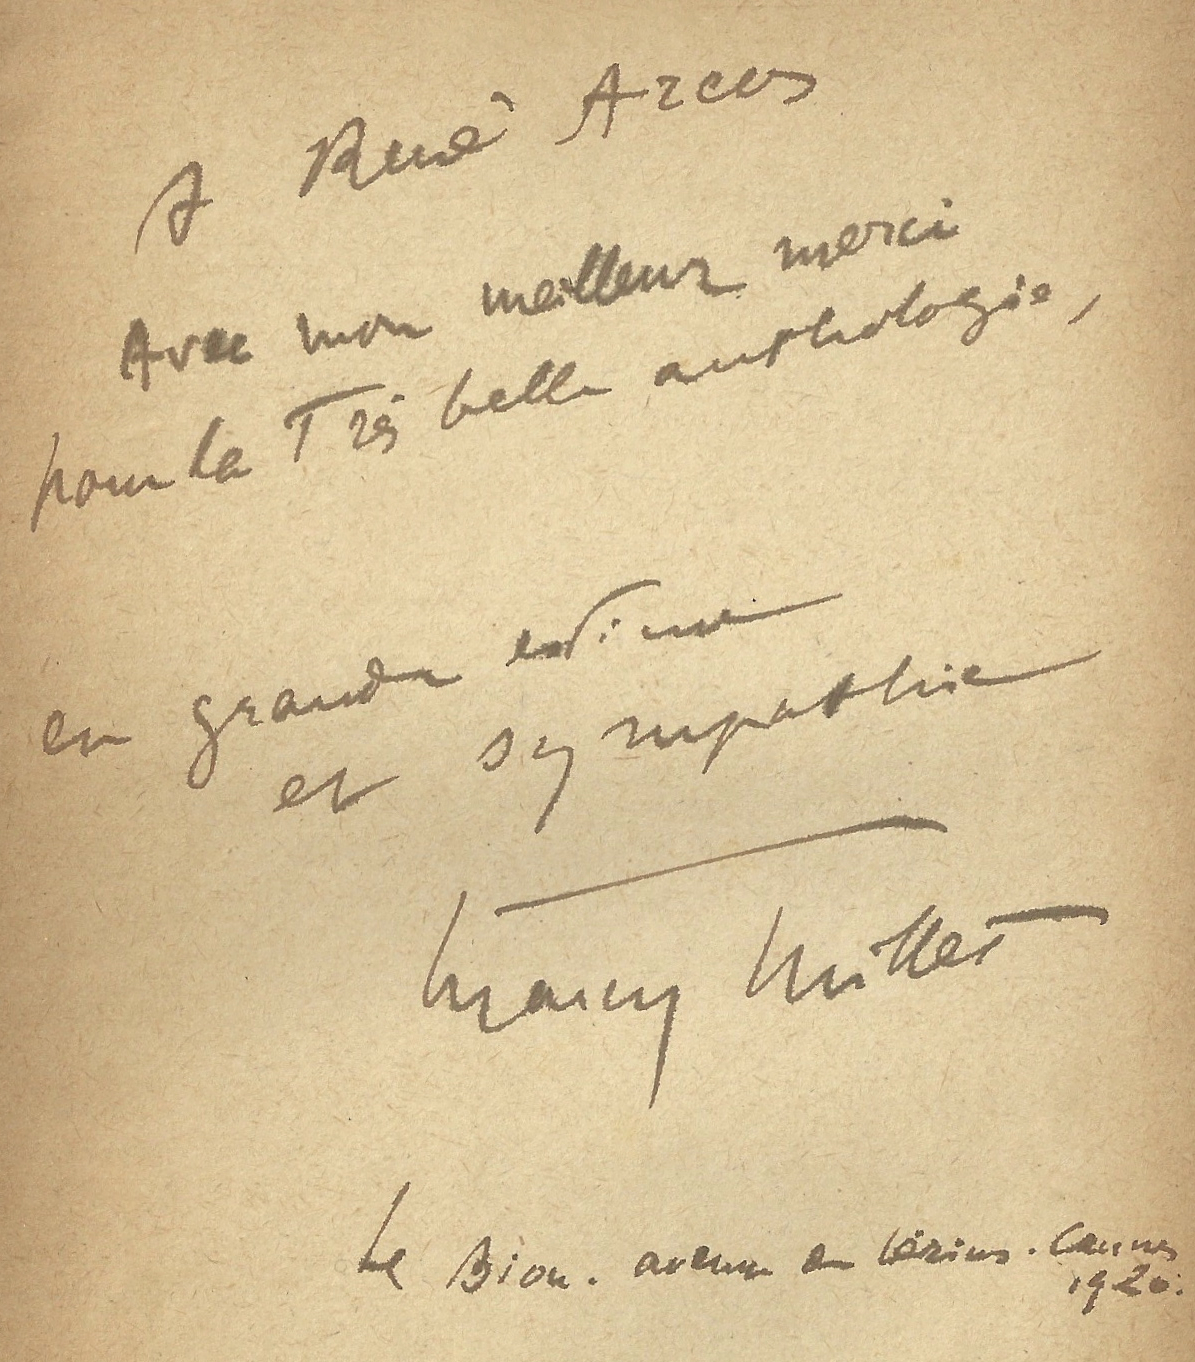 A René Arcos
Avec mon meilleur merci
pour la Très belle anthologie,
en grande estime
et sympathie
Marcy Millet
Le Bion. avenue de Lérins. Cannes
1920.